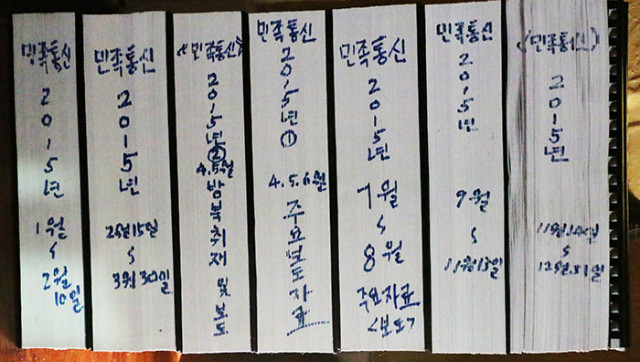 민족통신
2015년
1월
~
2월
10일
민족통신
2015년
2월15일
~
3월30일
<민족통신>
2015년②
4.5.6월
방북취재 및 보도
민족통신
2015년①
4.5.6월
주요보도자료
민족통신
2015년
7월
~
8월
주요자료
<보도>
민족통신
2015년
9월
~
11월13일
<민족통신>
2015년
11월14일
~
12월31일